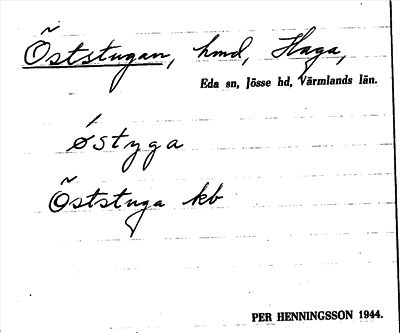 Öststugan, hmd, Haga,
Eda sn, Jösse hd, Värmlands län.
østyga
Öststuga kb
PER HENNINGSSON 1944.